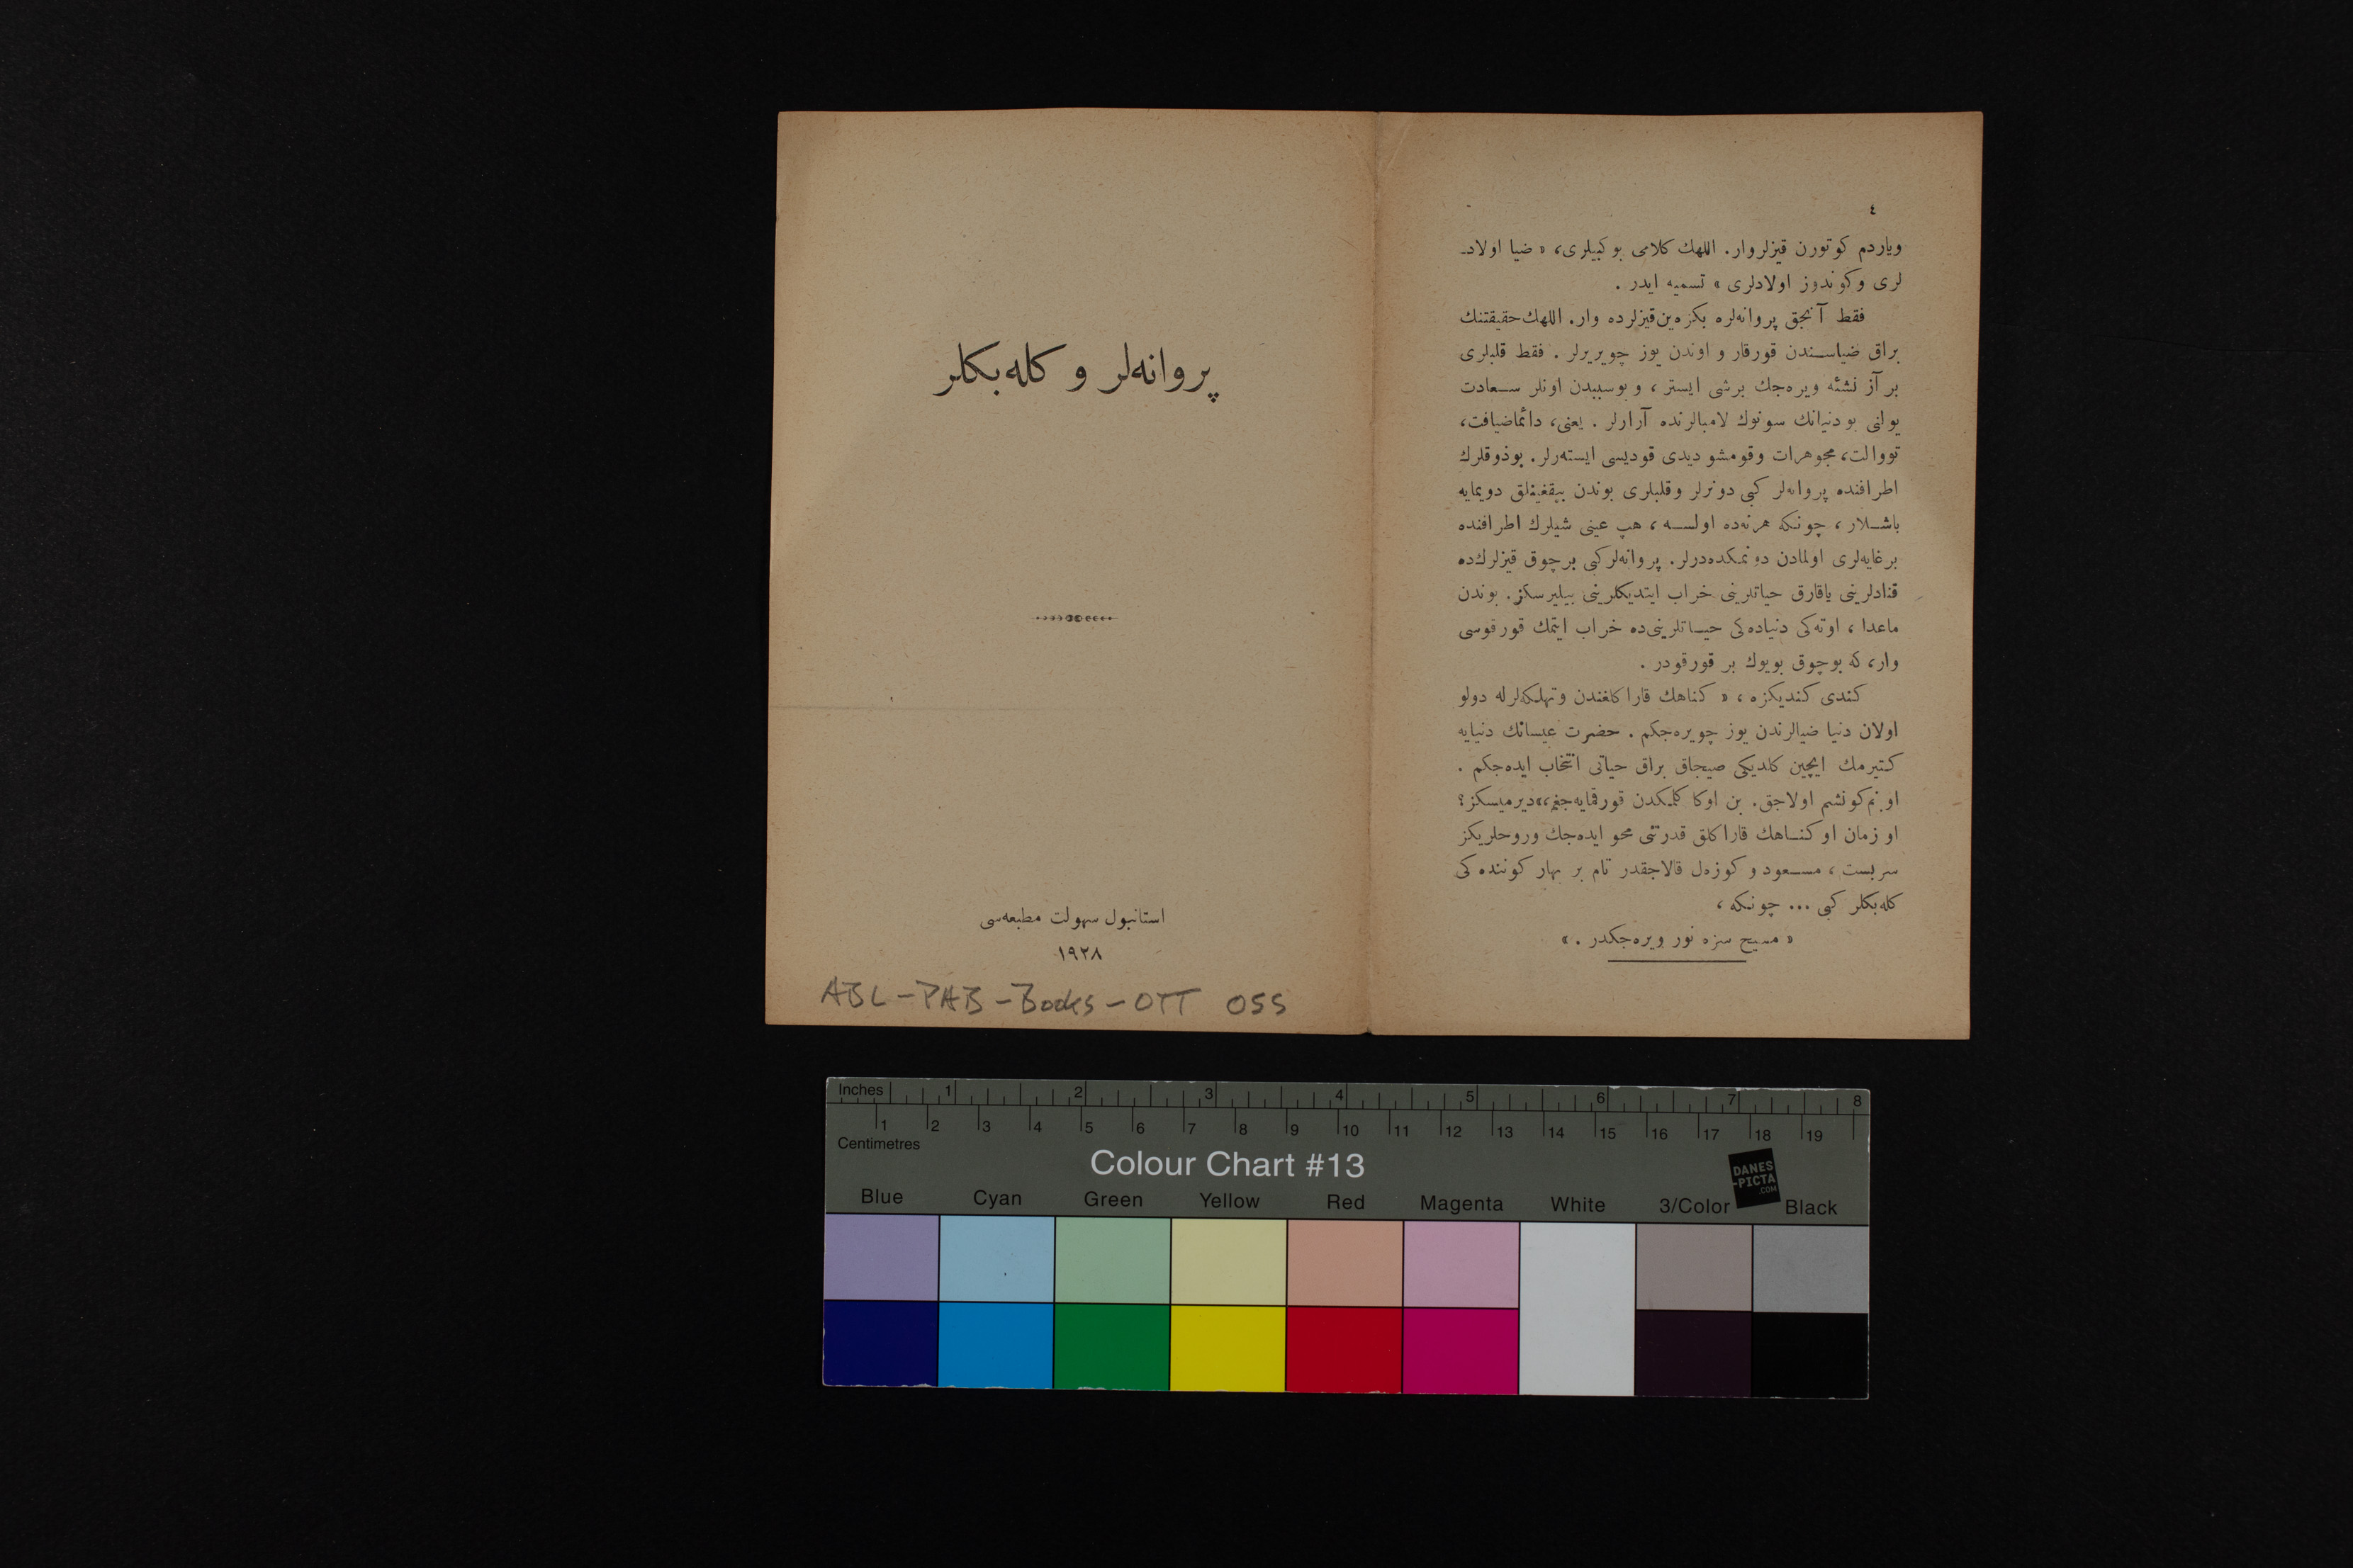 پروانه‌لر و كله‌بكلر
استانبول سهولت مطبعه‌سی
١٩٢٨
ABL-PAB-Books-OTT 055
٤
وياردم كوتورن قيزلروار. اللهك كلامی بو كبيلری، « ضيا اولاد-
لری وكوندوز اولادلری » تسميه ايدر .
فقط آنجق پروانه‌لره بكزه‌ين‌قيزلرده وار. اللهك‌حقيقتنك
براق ضياسندن قورقار و اوندن يوز چويريرلر . فقط قلبلری
بر آز نشئه ويره‌جك برشی ايستر ، و بوسببدن اونلر سعادت
يولنی بو دنيانك سونوك لامبالرنده آرارلر . يعنی، دائماضيافت،
تووالت، مجوهرات وقومشو ديدی قوديسی ايسته‌رلر. بوذوقلرك
اطرافنده پروانه‌لر كبی دونرلر وقلبلری بوندن بيقغينلق دويمايه
باشلار ، چونكه هرنه‌ده اولسه ، هپ عينی شيلرك اطرافنده
برغايه‌لری اولمادن دونمكده‌درلر. پروانه‌لركبی برچوق قيزلرك‌ده
قنادلرينی ياقارق حياتلرينی خراب ايتديكلرينی بيليرسكز. بوندن
ماعدا ، اوته‌كی دنياده‌كی حياتلرينی‌ده خراب ايتمك قورقوسی
وار، كه بوچوق بويوك بر قورقودر .
كندی كنديكزه ، « كناهك قاراكلغندن وتهلكه‌لرله دولو
اولان دنيا ضيالرندن يوز چويره‌جكم . حضرت عيسانك دنيايه
كتيرمك ايچين كلديكی صيجاق براق حياتی انتخاب ايده‌جكم .
او بنم‌كونشم اولاجق. بن اوكا كلمكدن قورقمايه‌جغم،»ديرميسكز؟
او زمان او كناهك قاراكلق قدرتنی محو ايده‌جك وروحلريكز
سربست ، مسعود و كوزه‌ل قالاجقدر تام بر بهار كوننده كی
كله‌بكلر كبی ... چونكه ،
« مسيح سزه نور ويره‌جكدر . »
Inches 1 2 3 4 5 6 7 8
1 2 3 4 5 6 7 8 9 10 11 12 13 14 15 16 17 18 19
Centimetres
Colour Chart #13
DANES
-PICTA
.COM
Blue Cyan Green Yellow Red Magenta White 3/Color Black